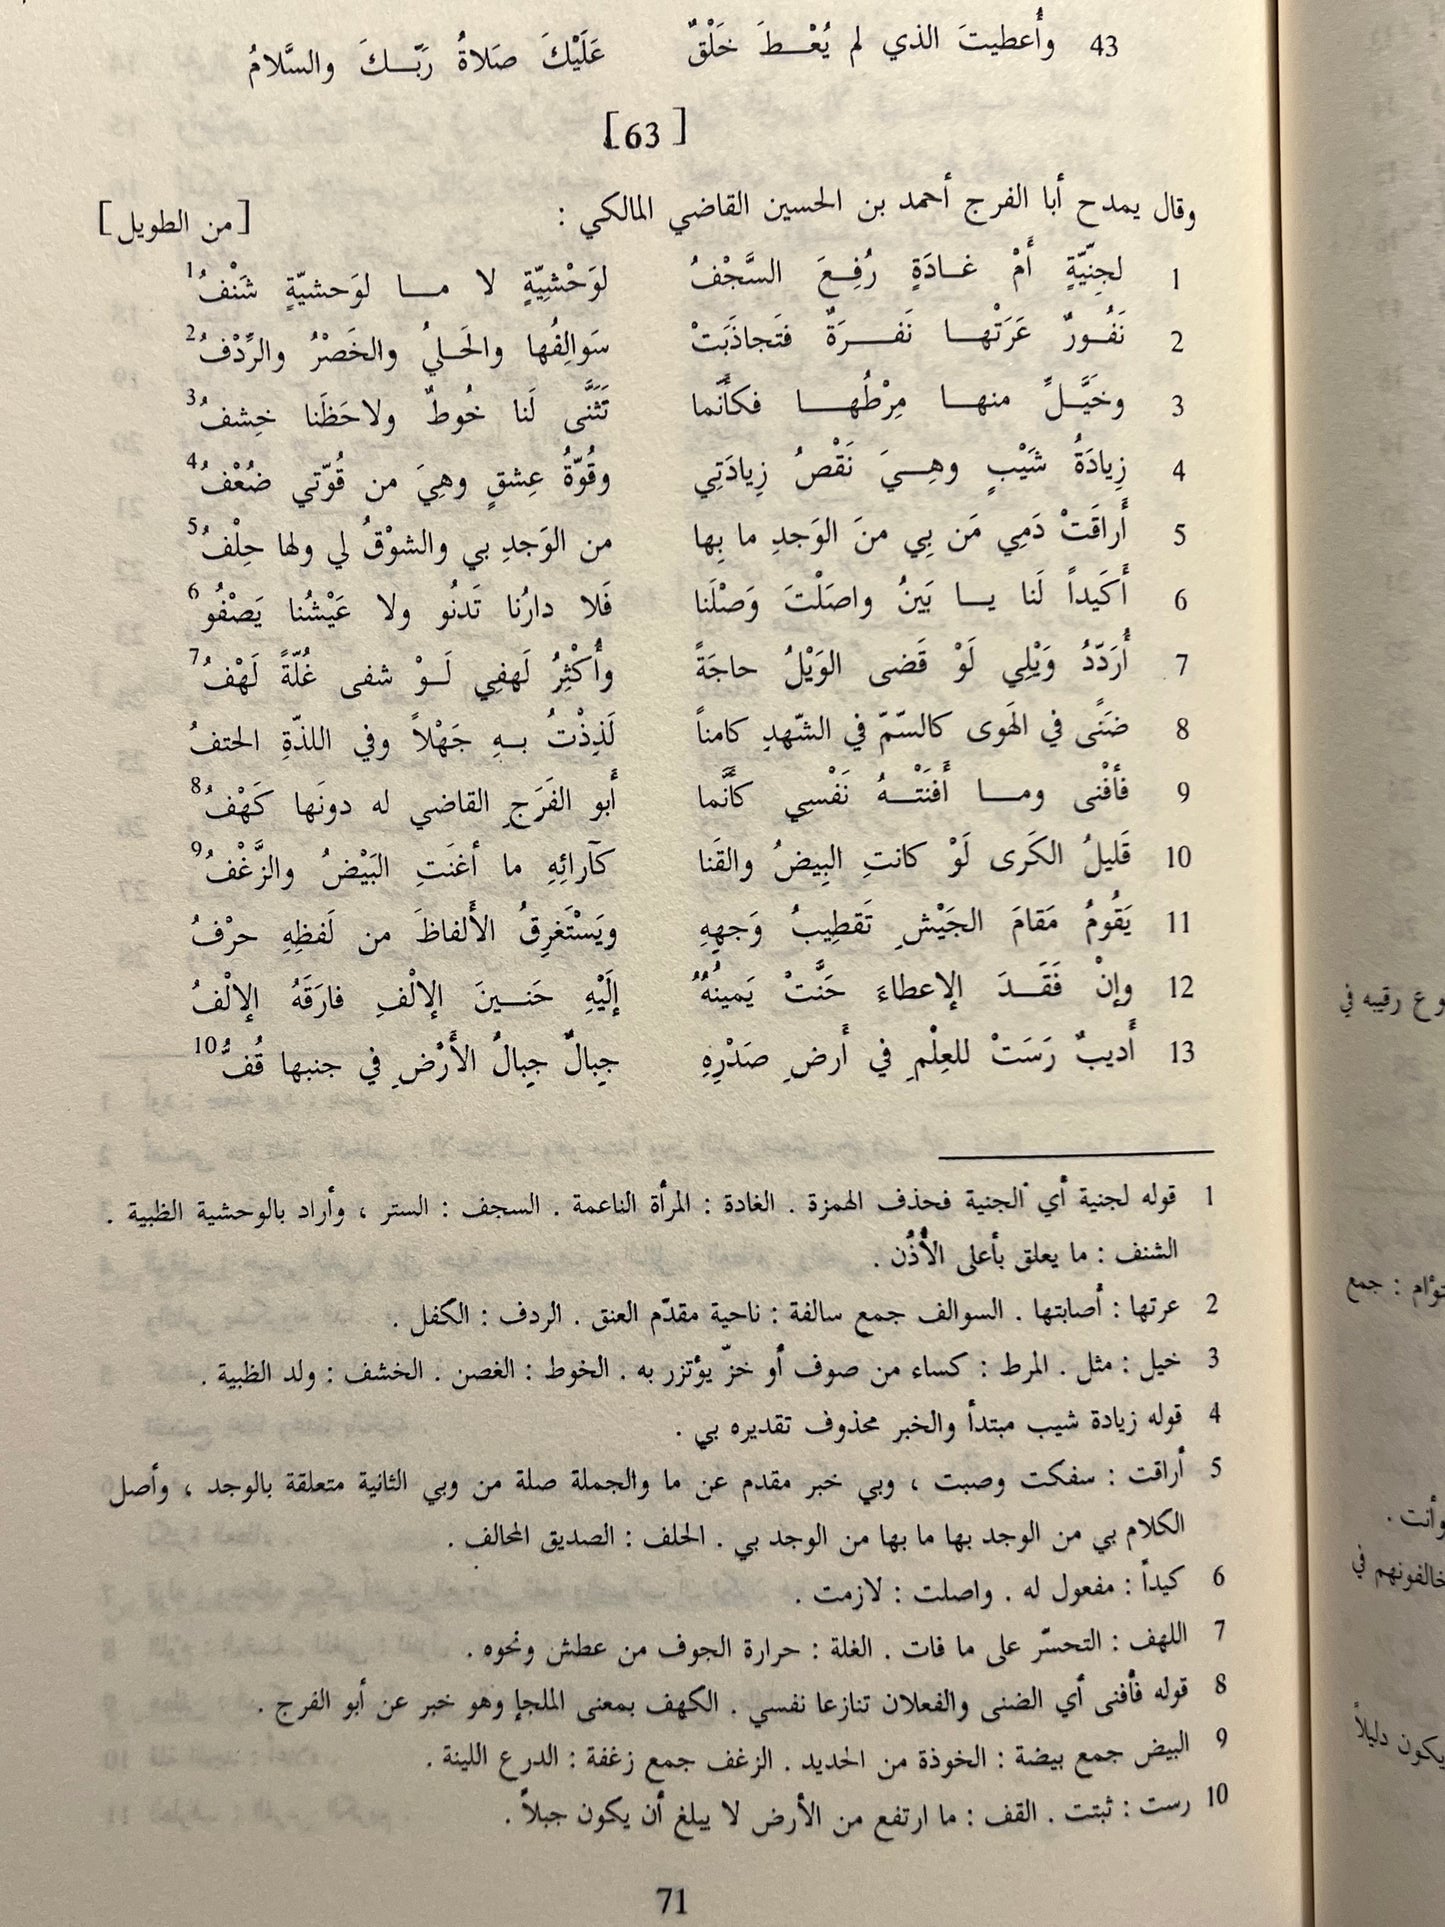 43 وأُعطيتَ الذي لم يُعْـطَ خَلْقٌ عَلَيْكَ صَلاةُ رَبّـكَ والسَّلامُ
[63]
وقال يمدح أبا الفرج أحمد بن الحسين القاضي المالكي : [من الطويل]
1 لجِنِيّةٍ أَمْ غـادَةٍ رُفِـعَ السَّجْفُ لوَحْشِيّةٍ لا مـا لوَحشيّةٍ شَنْفُ1
2 نَفُـورٌ عَرَتْهـا نَفـرَةٌ فتَجاذَبَتْ سَوالِفُها والحَـليُ والخَصْرُ والرِّدْفُ2
3 وخَيَّـلَ منهـا مِرْطُهـا فكأنّما تَثَنَّى لَنا خُوطٌ ولاحَظَنا خِشفُ3
4 زِيادَةُ شَيْبٍ وهـيَ نَقْصُ زِيادَتِي وقُوّةُ عِشقٍ وهيَ من قُوّتي ضُعْفُ4
5 أَراقَتْ دَمِي مَن بِي منَ الوَجدِ ما بِها من الوَجدِ بي والشوْقُ لي ولها حِلْفُ5
6 أَكَيداً لَنا يـا بَينُ واصَلْتَ وَصْلَنا فَلا دارُنا تَدنُو ولا عَيْشُنا يَصْفُو6
7 أُرَدّدُ وَيْلِي لَوْ قَضى الوَيْلُ حاجَةً وأُكْثِرُ لَهفِي لَـوْ شفى غُلّةً لَهْفُ7
8 ضنًى في الهَوى كالسّمّ في الشّهدِ كامناً لَذِذْتُ بـهِ جَهْلاً وفي اللذّةِ الحتفُ
9 فأفْنى ومـا أَفنَتْـهُ نَفْسِي كأَنَّما أَبو الفَرَجِ القاضي له دونَها كَهْفُ8
10 قَليلُ الكَرى لَوْ كانتِ البِيضُ والقَنا كآرائِهِ ما أغنَتِ البَيْضُ والزَّغْفُ9
11 يَقُومُ مَقامَ الجَيْشِ تَقطِيبُ وَجهِهِ ويَسْتَغرِقُ الأَلفاظَ من لَفظِهِ حرْفُ
12 وإنْ فَقَـدَ الإعطاءَ حَنَّتْ يَمينُهُ إلَيْهِ حَنـينَ الإلْفِ فارَقَهُ الإلْفُ
13 أَديبٌ رَسَتْ للعِلْمِ في أَرضِ صَدْرِهِ جِبالٌ جِبالُ الأَرْضِ في جنبها قُفُّ10
1 قوله لجنية أي ألجنية فحذف الهمزة . الغادة : المرأة الناعمة . السجف : الستر ، وأراد بالوحشية الظبية .
الشنف : ما يعلق بأعلى الأُذُن .
2 عرتها : أصابتها . السوالف جمع سالفة : ناحية مقدّم العنق . الردف : الكفل .
3 خيل : مثل . المرط : كساء من صوف أو خزّ يؤتزر به . الخوط : الغصن . الخشف : ولد الظبية .
4 قوله زيادة شيب مبتدأ والخبر محذوف تقديره بي .
5 أراقت : سفكت وصبت ، وبي خبر مقدم عن ما والجملة صلة من وبي الثانية متعلقة بالوجد ، وأصل
الكلام بي من الوجد بها ما بها من الوجد بي . الحلف : الصديق المحالف .
6 كيداً : مفعول له . واصلت : لازمت .
7 اللهف : التحسّر على ما فات . الغلة : حرارة الجوف من عطش ونحوه .
8 قوله فأفنى أي الضنى والفعلان تنازعا نفسي . الكهف بمعنى الملجإ وهو خبر عن أبو الفرج .
9 البيض جمع بيضة : الخوذة من الحديد . الزغف جمع زغفة : الدرع اللينة .
10 رست : ثبتت . القف : ما ارتفع من الأرض لا يبلغ أن يكون جبلاً .
71
وع رقيبه في
توأم : جمع
وأنت .
خالفونهم في
يكون دليلاً